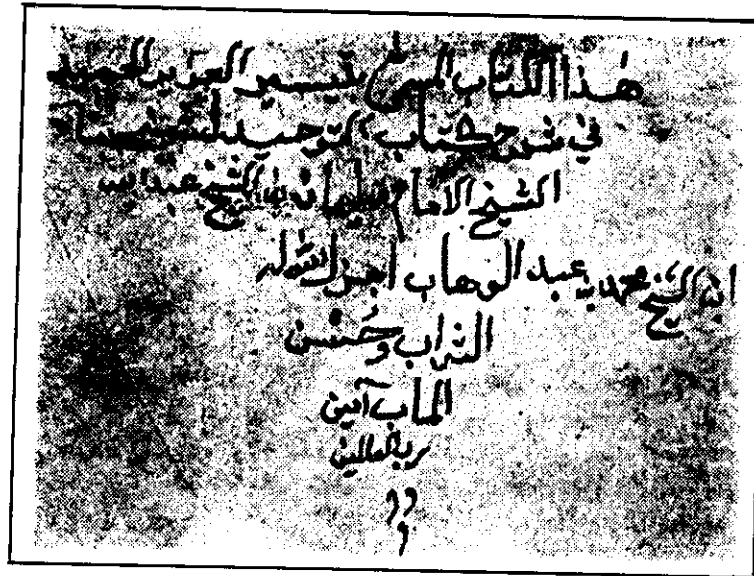 هذا الكتاب المسمى بتيسير العزيز الحميد
في شرح كتاب التوحيد
الشيخ الامام سليمان بن الشيخ عبد الله
ابن الشيخ محمد بن عبد الوهاب اجزل الله له
الثواب وحسن
الماب آمين
رب العالمين